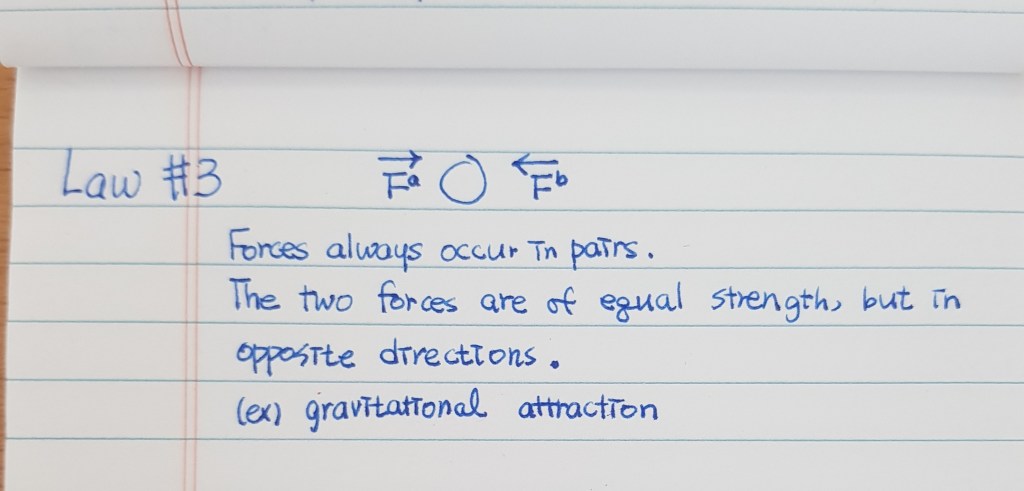 Law #3 Fa Fb
Forces always occur in pairs.
The two forces are of equal strength, but in
opposite directions.
(ex) gravitational attraction